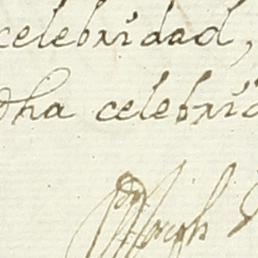 celebridad,
dha celebrid